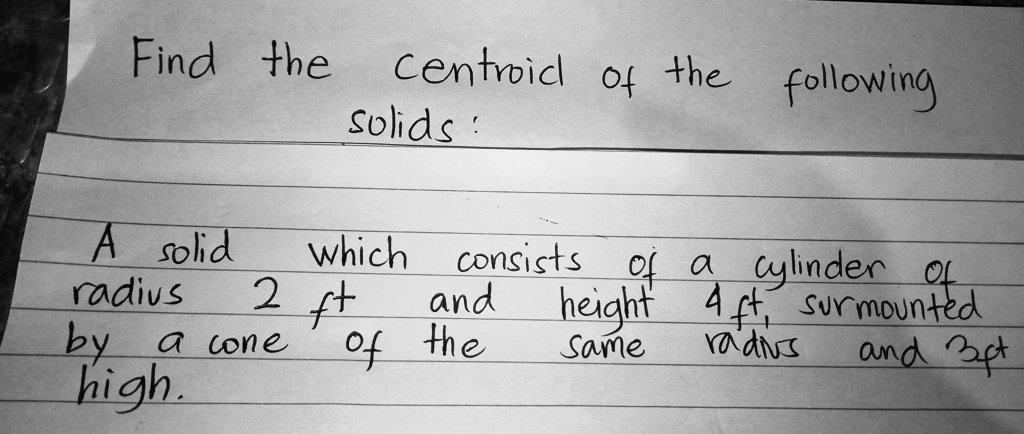 Find the centroid of the following
solids:
A solid which consists of a cylinder of
radius 2 ft and height 4 ft, surmounted
by a cone of the same radius and 3ft
high.